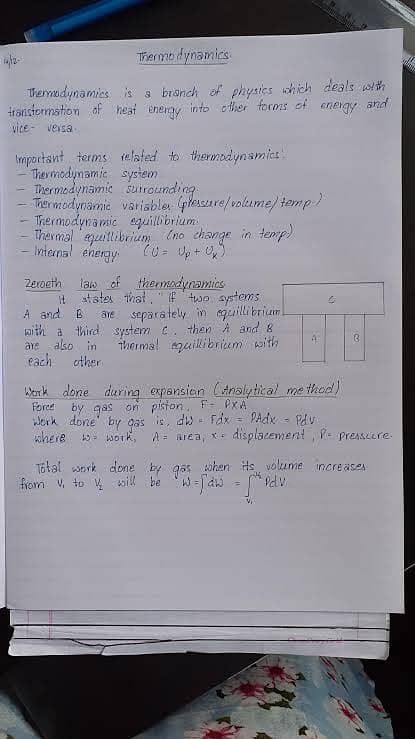 14/12.
Thermodynamics.
Thermodynamics is a branch of physics which deals with
transformation of heat energy into other forms of energy and
vice-versa.
Important terms related to thermodynamics:
- Thermodynamic system.
- Thermodynamic surrounding.
- Thermodynamic variables (pressure/volume/temp.)
- Thermodynamic equillibrium.
- Thermal equillibrium (no change in temp)
- Internal energy. (U = Up + Uk)
Zeroeth law of thermodynamics
It states that, "If two systems
A and B are separately in equillibrium
with a third system C, then A and B
are also in thermal equillibrium with
each other.
C
A B
Work done during expansion (Analytical method)
Force by gas on piston, F = P×A
Work done by gas is, dw = Fdx = PAdx = Pdv
where w = work, A = area, x = displacement, P = pressure.
Total work done by gas when its volume increases
from V₁ to V₂ will be W = ∫dw = ∫V₁V₂ PdV.